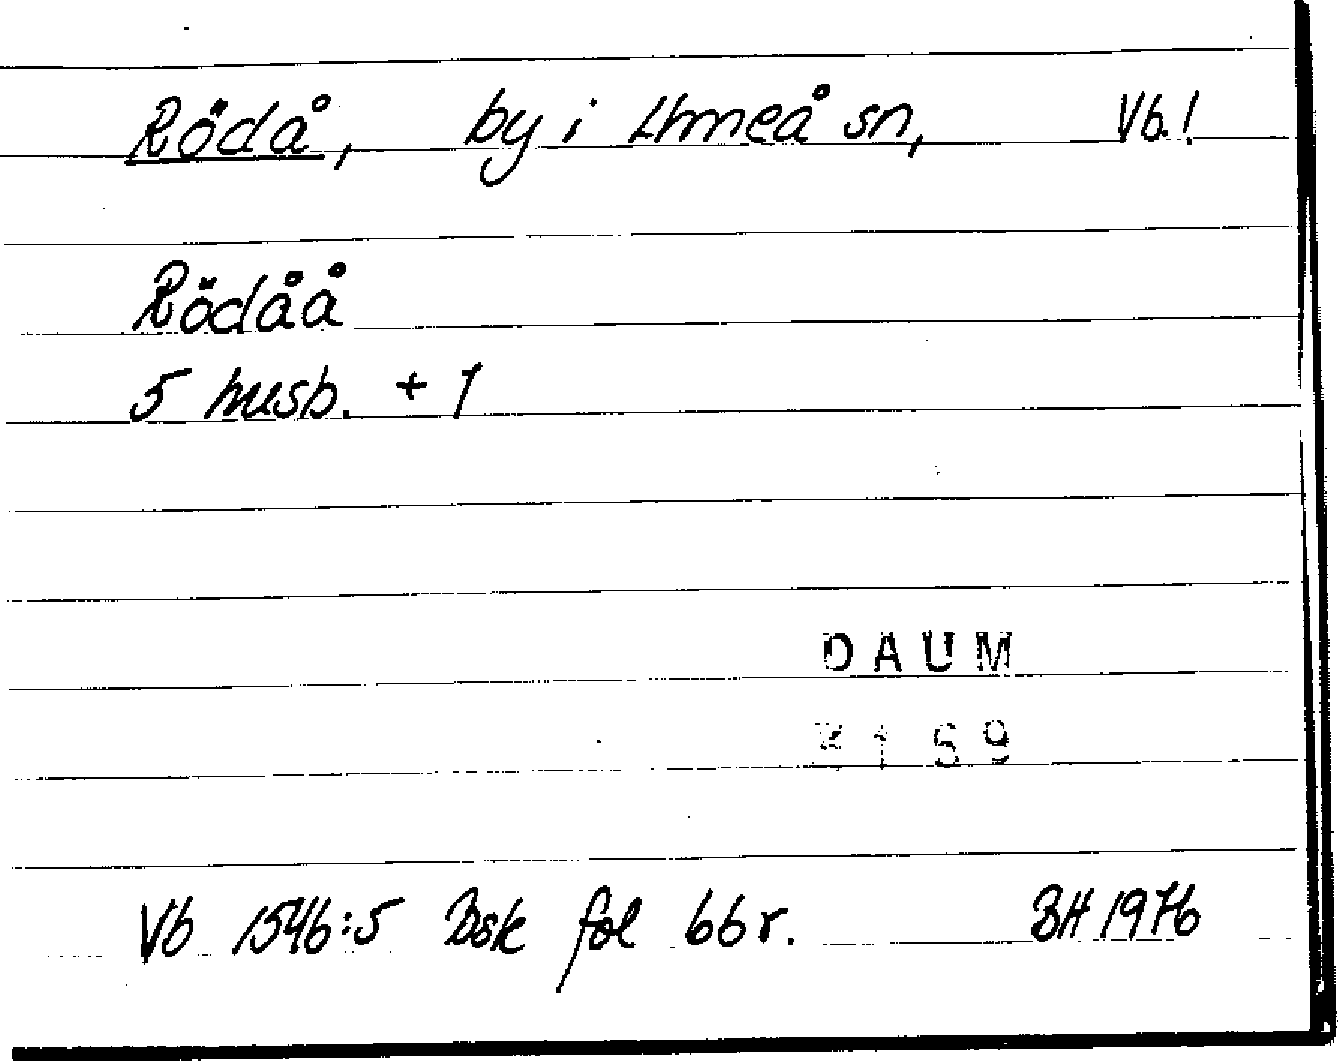 Rödå, by i Umeå sn, Vb.!
Rödåå
5 husb. + 1
DAUM
159
Vb 1546:5 Bsk fol 66r. BH 1976